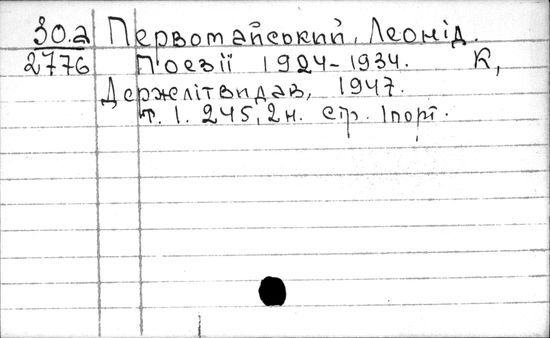 30.а Первомайський, Леонід.
2776 Поезії 1924-1934. К,
Держлітвидав, 1947.
т. 1. 245, 2 н. стр. 1 порт.